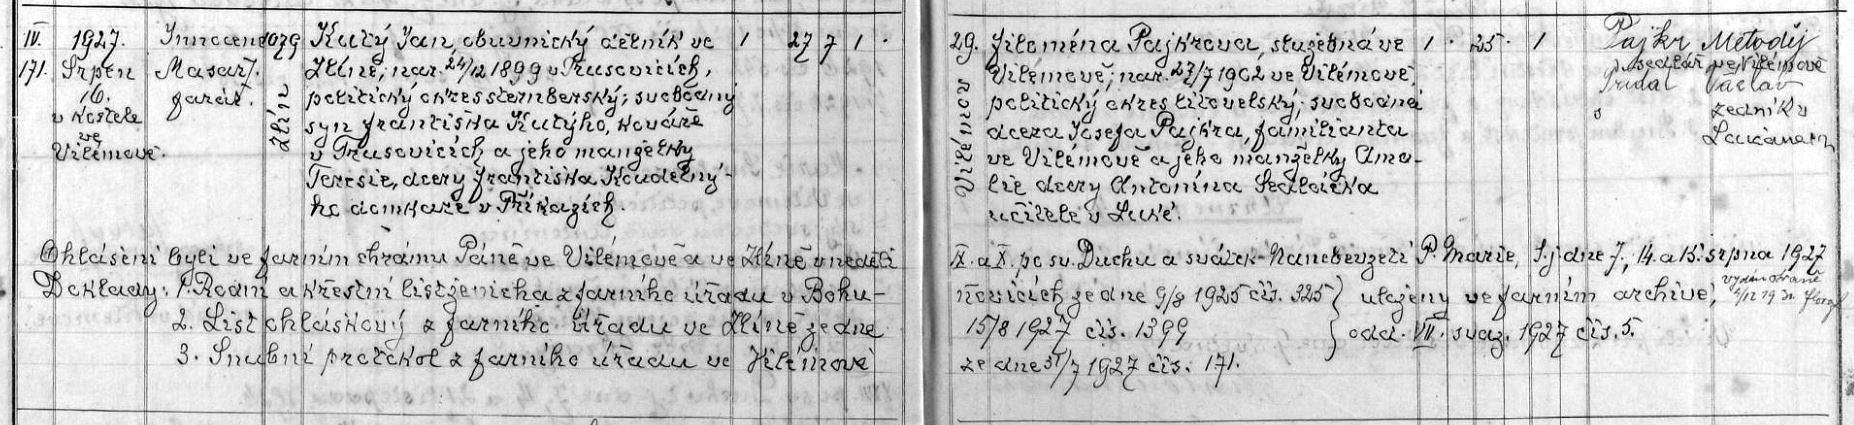 IV. 1927. Innocenc 1079 Kutý Jan, obuvnický dělník ve 1 . 27 7 1 .
171. Srpen Masař, Zlíně, nar. 24/12 1899 v Trusovicích,
16. farář. politický okres šternberský; svobodný
v kostele Zlín syn Františka Kutýho, kováře
ve v Trusovicích a jeho manželky
Vilémově. Terezie, dcery Františka Koudelný-
ho domkaře v Příkazích.
Ohlášeni byli ve farním chrámu Páně ve Vilémově a ve Zlíně v neděli
Doklady: 1. Rodní a křestní list ženicha z farního úřadu v Bohu-
2. List ohláškový z farního úřadu ve Zlíně ze dne
3. Snubní protokol z farního úřadu ve Vilémově
29. Filoména Pajkrova, služebná ve 1 . 25 . 1 Pajkr Metoděj
Vilémově; nar. 27/7 1902 ve Vilémově, sedlář ve Vilémově
politický okres litovelský; svobodná Přidal Václav
Vilémov dcera Josefa Pajkra, familianta zedník v
ve Vilémově a jeho manželky Ama- Loučanech
lie dcery Antonína Sedláčka
učitele v Luké.
IX. a X. po sv. Duchu a svátek Nanebevzetí P. Marie, t. j. dne 7., 14. a 15. srpna 1927
ňovicích ze dne 9/8 1925 čís. 325 } uloženy ve farním archivě, vydán
15/8 1927 čís. 1399 odd. VII. svaz. 1927 čís. 5.
ze dne 31/7 1927 čís. 171.